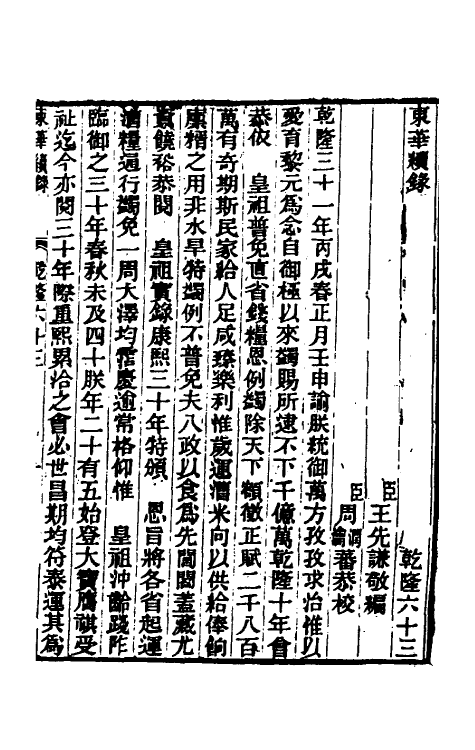 東華續錄
乾隆六十三
臣王先謙敬編
臣周潤蕃周瀹蕃恭校
乾隆三十一年丙戌春正月壬申諭朕統御萬方孜孜求治惟以
愛育黎元為念自御極以來蠲賜所逮不下千億萬乾隆十年會
恭依　皇祖普免直省錢糧恩例蠲除天下額徵正賦二千八百
萬有奇期斯民家給人足咸臻樂利惟歲運漕米向以供給俸餉
廩糈之用非水旱特蠲例不普免夫八政以食為先閭閻蓋藏尤
資饒裕恭閱　皇祖實錄康熙三十年特頒　恩旨將各省起運
漕糧通行蠲免一周大澤均霑慶逾常格仰惟　皇祖沖齡踐阼
臨御之三十年春秋未及四十朕年二十有五始登大寶膺祺受
祉迄今亦閱三十年際重熙累洽之會必世昌期均符泰運其為
東華續錄　乾隆六十三　一